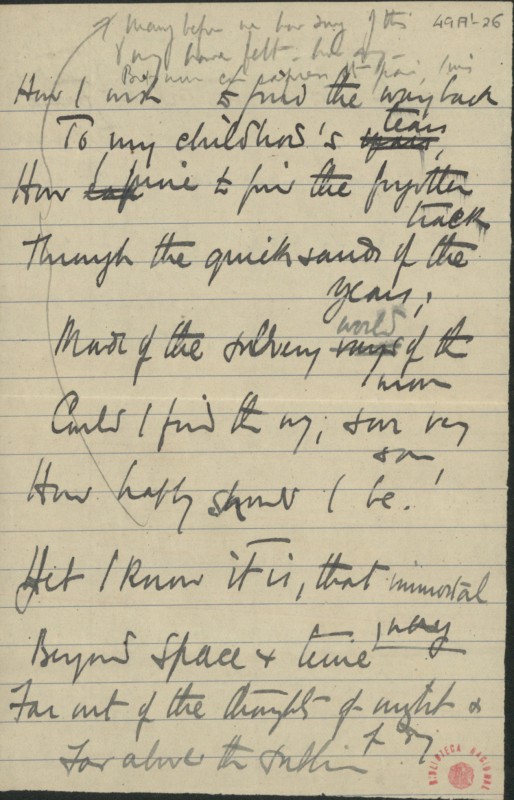 Many before me have sung of this
49A1-26
& may have felt
How I wish to find the way back
To my childhood's years tears,
How I pine to find the forgotten
track
Through the quicksands of the
years;
Made of the silvery rays world of the
moon
Could I find the way, soon very
soon,
How happy should I be!
Yet I know it is, that immortal
way,
Beyond space & time
Far out of the thought of night &
of day
Far above the
BIBLIOTECA NACIONAL